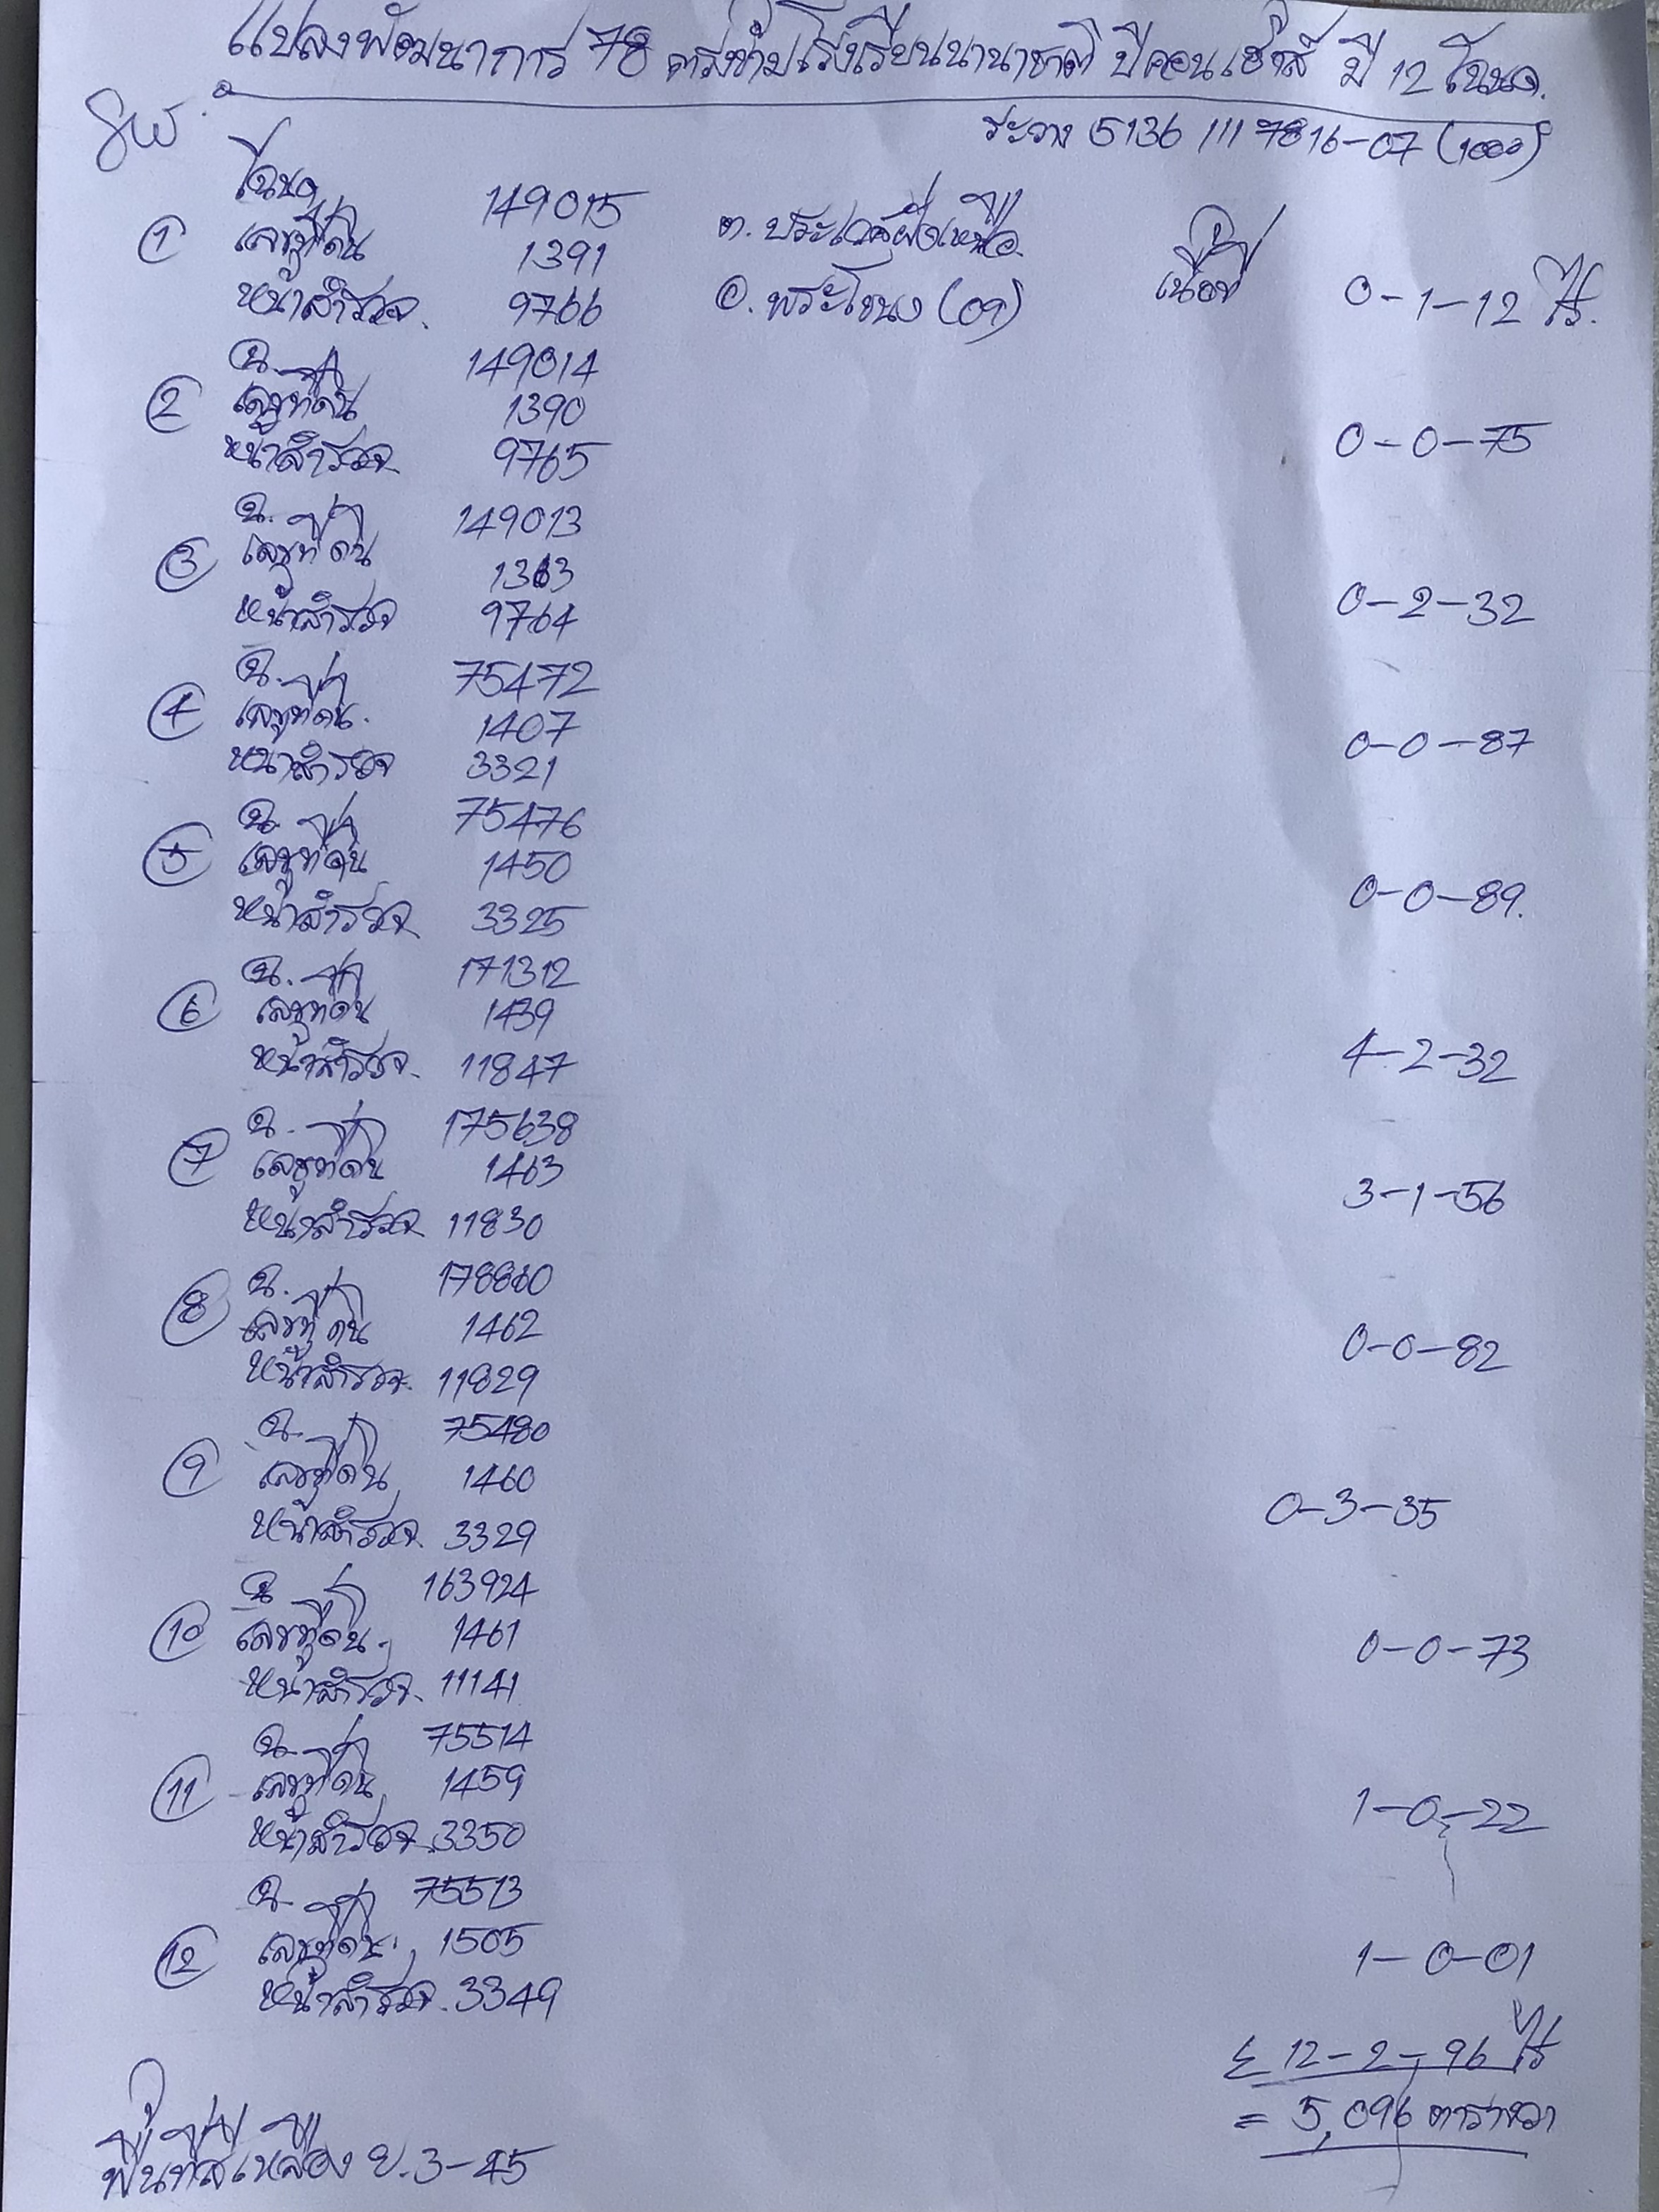 แปลงพัฒนาการ 78 ตรงข้ามโรงเรียนนานาชาติ บีคอนเฮ้าส์ มี 12 โฉนด.
ระวาง 5136 III 7816-07 (1000)
โฉนด 149015
① เลขที่ดิน 1391 ต. ประเวศฝั่งเหนือ
หน้าสำรวจ. 9766 อ. พระโขนง (09) เนื้อที่ 0-1-12 ไร่.
ฉ. 149014
② เลขที่ดิน 1390 0-0-75
หน้าสำรวจ 9765
ฉ. 149013
③ เลขที่ดิน 1363
หน้าสำรวจ 9764 0-2-32
ฉ. 75472
④ เลขที่ดิน. 1407 0-0-87
หน้าสำรวจ 3321
ฉ. 75476
⑤ เลขที่ดิน 1450 0-0-89.
หน้าสำรวจ 3325
ฉ. 171312
⑥ เลขที่ดิน 1439 4-2-32
หน้าสำรวจ. 11847
ฉ. 175638
⑦ เลขที่ดิน 1463 3-1-56
หน้าสำรวจ 11830
ฉ. 178860
⑧ เลขที่ดิน 1462 0-0-82
หน้าสำรวจ. 11829
ฉ. 75480
⑨ เลขที่ดิน 1460 0-3-35
หน้าสำรวจ 3329
ฉ 163924
⑩ เลขที่ดิน. 1461 0-0-73
หน้าสำรวจ. 11141
ฉ. 75514
⑪ เลขที่ดิน 1459 1-0-22
หน้าสำรวจ. 3350
ฉ. 75513
⑫ เลขที่ดิน. 1505 1-0-01
หน้าสำรวจ. 3349
Σ 12-2-96 ไร่
= 5,096 ตารางวา
พื้นที่สีเหลือง ย.3-45